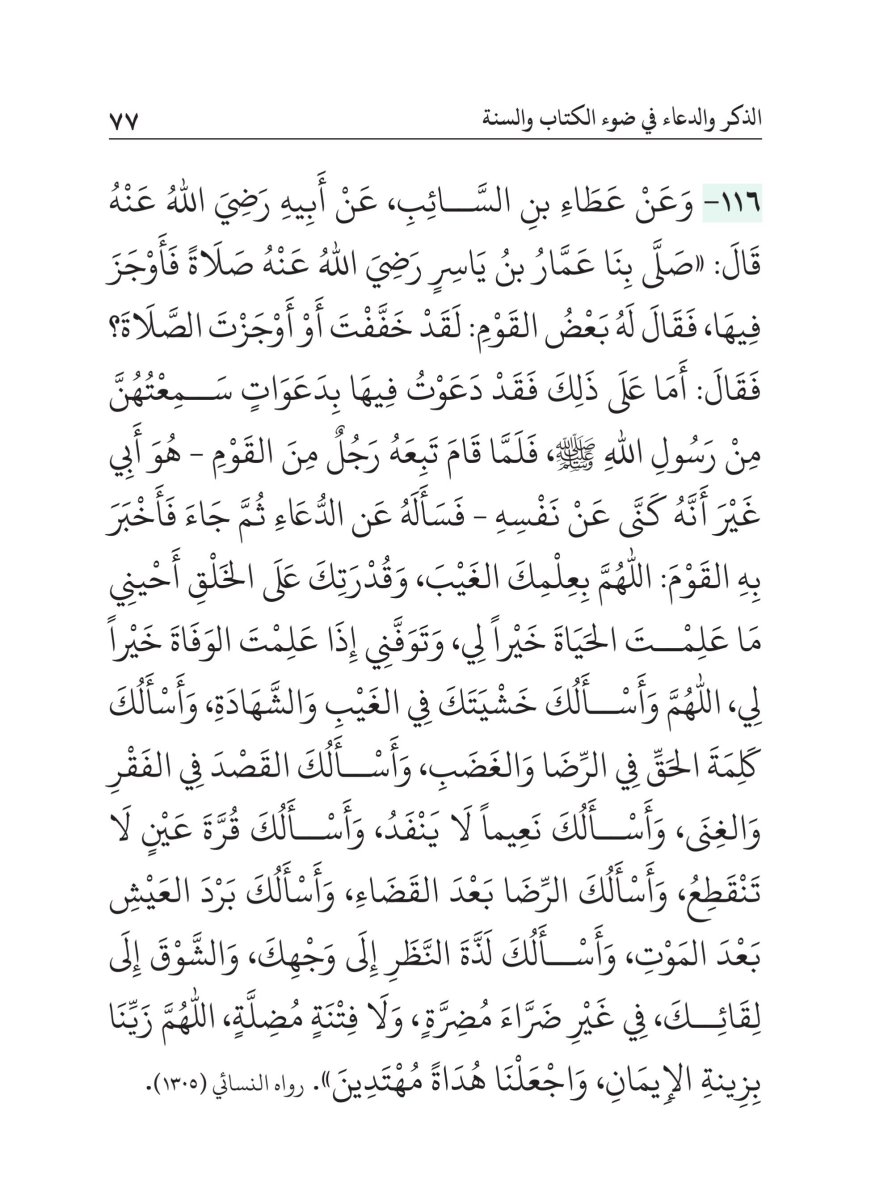 الذكر والدعاء في ضوء الكتاب والسنة ٧٧
١١٦- وَعَنْ عَطَاءِ بنِ السَّائِبِ، عَنْ أَبِيهِ رَضِيَ اللهُ عَنْهُ
قَالَ: «صَلَّى بِنَا عَمَّارُ بنُ يَاسِرٍ رَضِيَ اللهُ عَنْهُ صَلَاةً فَأَوْجَزَ
فِيهَا، فَقَالَ لَهُ بَعْضُ القَوْمِ: لَقَدْ خَفَّفْتَ أَوْ أَوْجَزْتَ الصَّلَاةَ؟
فَقَالَ: أَمَا عَلَى ذَلِكَ فَقَدْ دَعَوْتُ فِيهَا بِدَعَوَاتٍ سَمِعْتُهُنَّ
مِنْ رَسُولِ اللهِ ﷺ، فَلَمَّا قَامَ تَبِعَهُ رَجُلٌ مِنَ القَوْمِ - هُوَ أَبِي
غَيْرَ أَنَّهُ كَنَّى عَنْ نَفْسِهِ - فَسَأَلَهُ عَن الدُّعَاءِ ثُمَّ جَاءَ فَأَخْبَرَ
بِهِ القَوْمَ: اللَّهُمَّ بِعِلْمِكَ الغَيْبَ، وَقُدْرَتِكَ عَلَى الخَلْقِ أَحْينِي
مَا عَلِمْتَ الحَيَاةَ خَيْراً لِي، وَتَوَفَّنِي إِذَا عَلِمْتَ الوَفَاةَ خَيْراً
لِي، اللَّهُمَّ وَأَسْأَلُكَ خَشْيَتَكَ فِي الغَيْبِ وَالشَّهَادَةِ، وَأَسْأَلُكَ
كَلِمَةَ الحَقِّ فِي الرِّضَا وَالغَضَبِ، وَأَسْأَلُكَ القَصْدَ فِي الفَقْرِ
وَالغِنَى، وَأَسْأَلُكَ نَعِيماً لَا يَنْفَدُ، وَأَسْأَلُكَ قُرَّةَ عَيْنٍ لَا
تَنْقَطِعُ، وَأَسْأَلُكَ الرِّضَا بَعْدَ القَضَاءِ، وَأَسْأَلُكَ بَرْدَ العَيْشِ
بَعْدَ المَوْتِ، وَأَسْأَلُكَ لَذَّةَ النَّظَرِ إِلَى وَجْهِكَ، وَالشَّوْقَ إِلَى
لِقَائِكَ، فِي غَيْرِ ضَرَّاءَ مُضِرَّةٍ، وَلَا فِتْنَةٍ مُضِلَّةٍ، اللَّهُمَّ زَيِّنَا
بِزِينةِ الإِيمَانِ، وَاجْعَلْنَا هُدَاةً مُهْتَدِينَ». رواه النسائي (١٣٠٥).